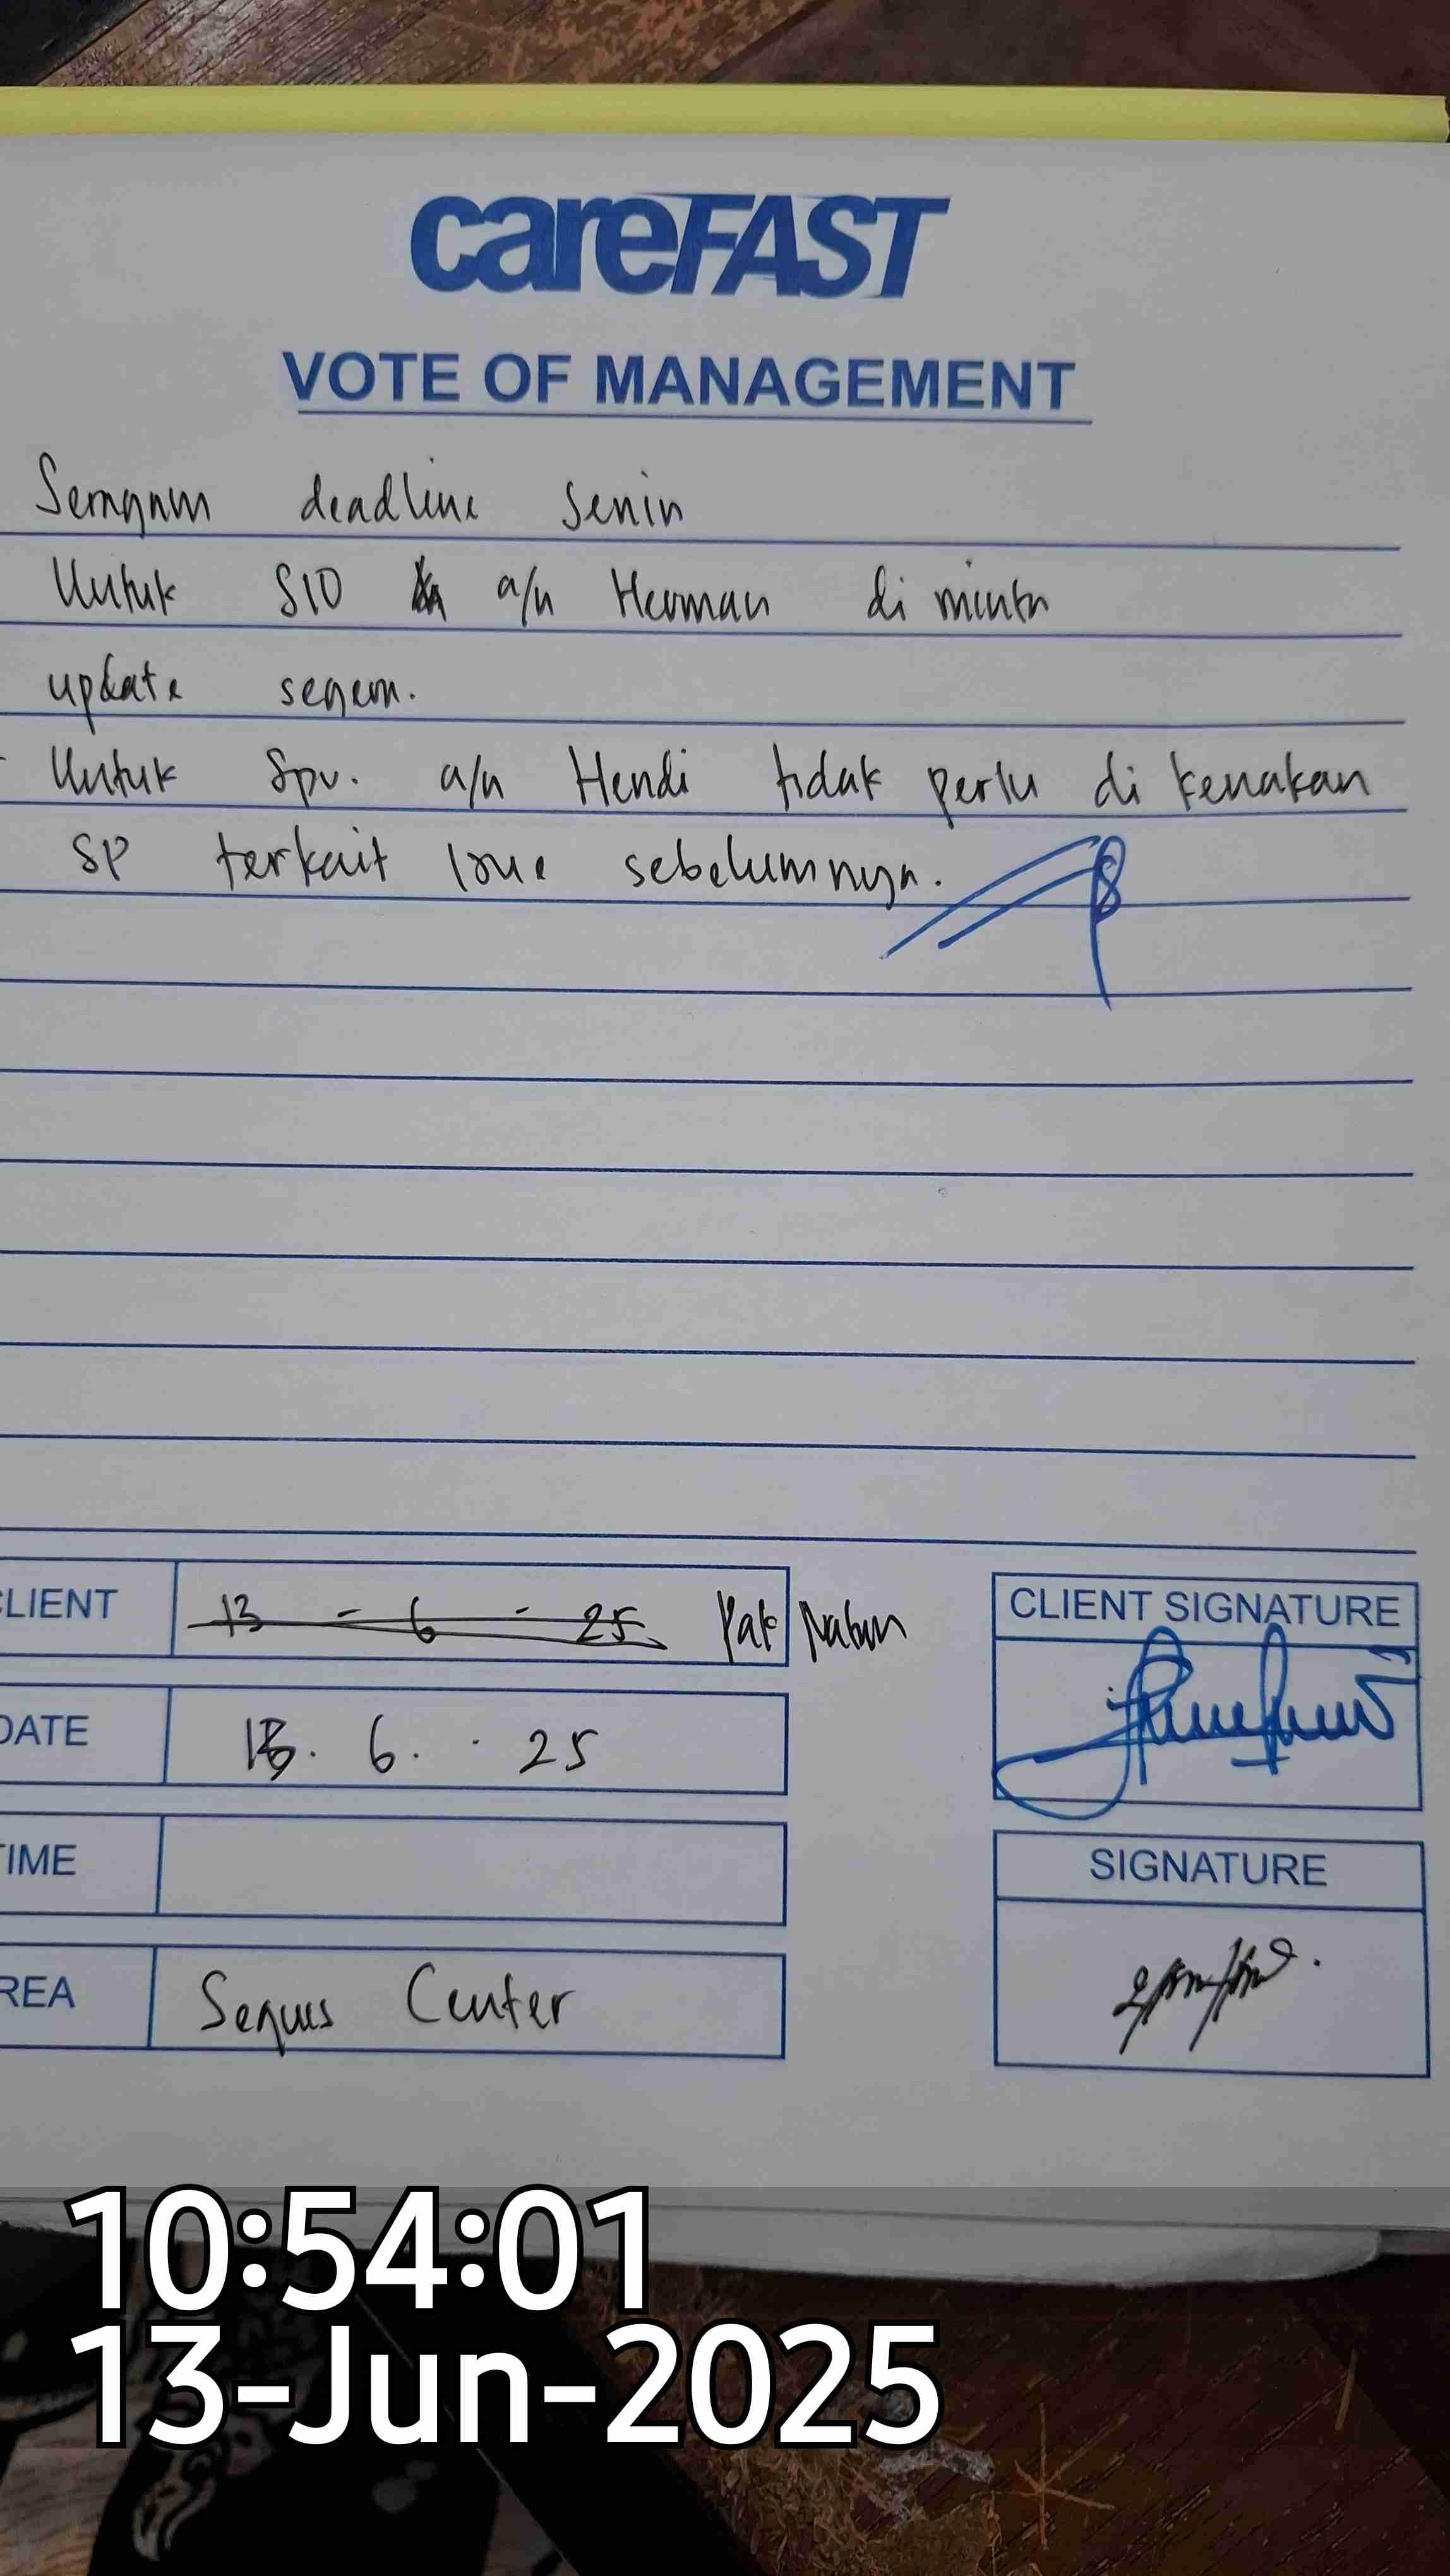 careFAST
VOTE OF MANAGEMENT
Seragam deadline Senin
Untuk SIO a/n Herman di minta
update segera.
- Untuk Spv. a/n Hendi tidak perlu di kenakan
SP terkait Isue sebelumnya.
CLIENT 13 - 6 - 25 Pak
CLIENT SIGNATURE
DATE 13. 6. . 25
TIME
SIGNATURE
AREA Sequis Center
10:54:01
13-Jun-2025